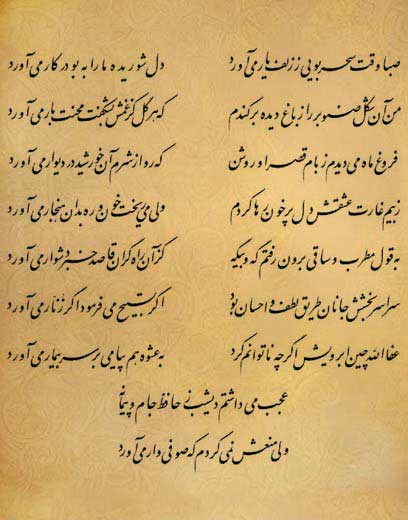 صبا وقت سحر بویی ز زلف یار می آورد دل شوریده ما را به بو در کار می آورد
من آن شکل صنوبر را ز باغ دیده برکندم که هر گل کز غمش بشکفت محنت بار می آورد
فروغ ماه می دیدم ز بام قصر او روشن که رو از شرم آن خورشید در دیوار می آورد
ز بیم غارت عشقش دل پرخون رها کردم ولی می ریخت خون و ره بدان هنجار می آورد
به قول مطرب و ساقی برون رفتم گه و بیگه کز آن راه گران قاصد خبر دشوار می آورد
سراسر بخشش جانان طریق لطف و احسان بود اگر تسبیح می فرمود اگر زنار می آورد
عفا الله چین ابرویش اگر چه ناتوانم کرد به عشوه هم پیامی بر سر بیمار می آورد
عجب می داشتم دیشب ز حافظ جام و پیمانه
ولی منعش نمی کردم که صوفی وار می آورد